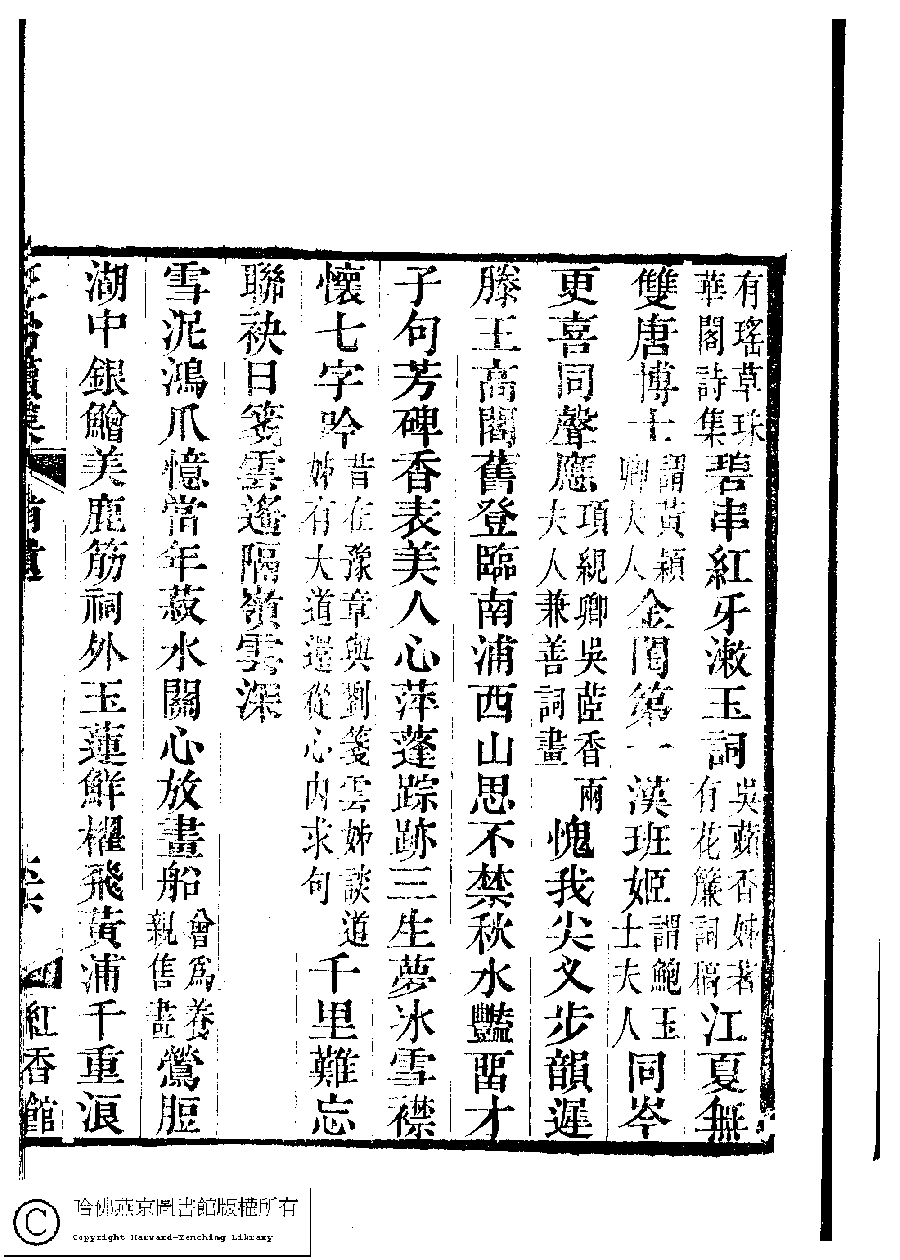 有瑤草珠華閣詩集碧串紅牙漱玉詞吳蘋香姊著有花簾詞稿江夏無
雙唐博士謂黃穎卿夫人金閨第一漢班姬謂鮑玉士夫人同岑
更喜同聲應項絸卿吳茝香兩夫人兼善詞畫愧我尖叉步韻遲
滕王高閣舊登臨南浦西山思不禁秋水豔畱才
子句芳碑香表美人心萍蓬踪跡三生夢冰雪襟
懷七字吟昔在豫章與劉箋雲姊談道姊有大道還從心內求句千里難忘
聯袂日箋雲遙隔嶺雲深
雪泥鴻爪憶當年菽水關心放畫船曾為養親售畫鶯脰
湖中銀鱠美鹿筋祠外玉蓮鮮櫂飛黃浦千重浪
紅香館
哈佛燕京圖書館版權所有
Copyright Harvard-Yenching Library